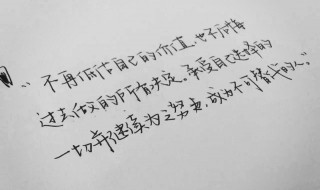 “不再低估自己的价值,也不后悔
过去做过的所有决定。承受自己选择的
一切并继续为之努力,成为不可替代的人。”